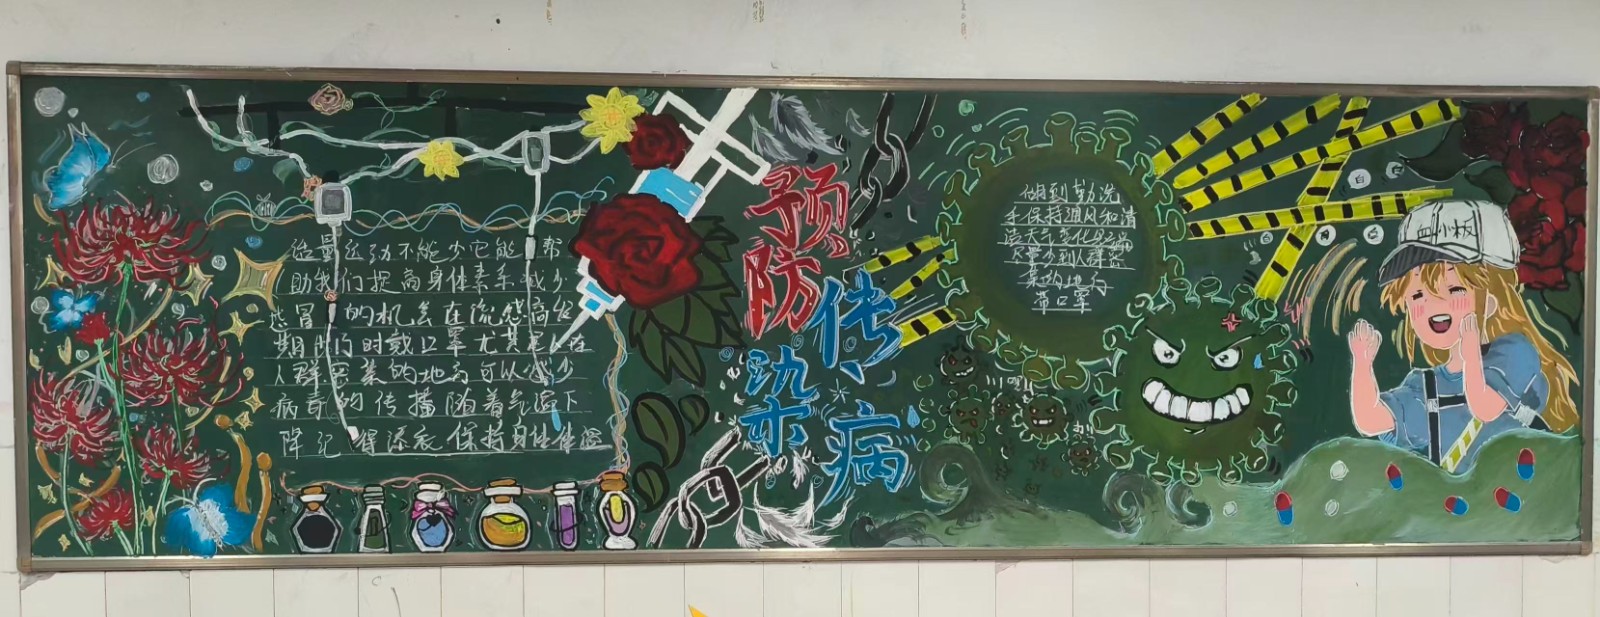 适量运动不能少它能帮
助我们提高身体素系减少
感冒的机会在流感高发
期出门时戴口罩尤其是在
人群密集的地方可以减少
病毒的传播随着气温下
降记得添衣保持身体体温
预防
传染病
做到勤洗
手保持通风和清
洁天气变化
尽量少到人群密
集的地方
带口罩
血小板